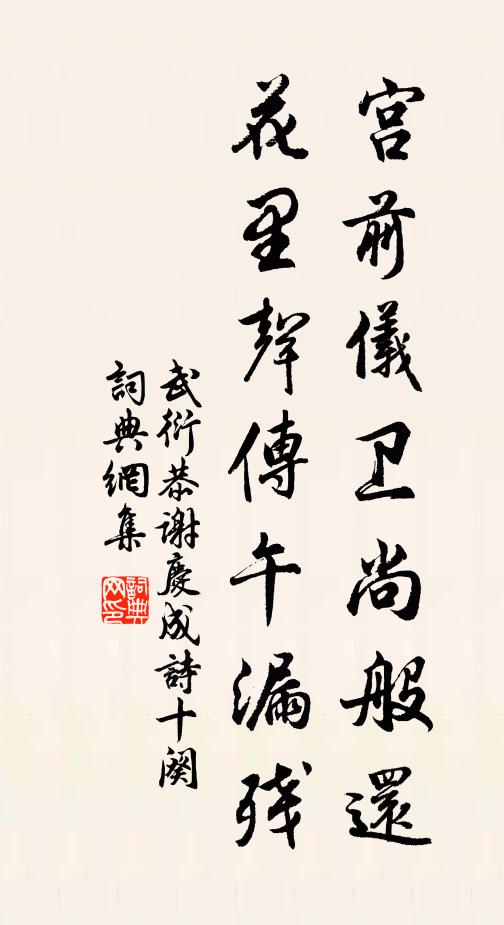 宫前儀卫尚般還
花里聲傳午漏殘
武衍恭謝慶成詩十闋
詞典網集
詞典網印